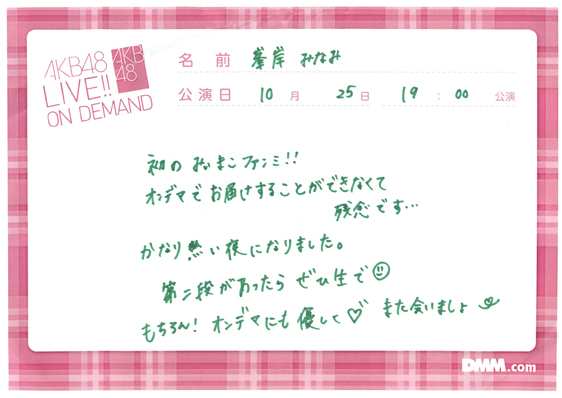 AKB48
LIVE!!
ON DEMAND
AKB
48
名前 峯岸 みなみ
公演日 10月 25日 19:00 公演
初の おいまこファンミ!!
オンデマでお届けすることができなくて
残念です…
かなり熱い夜になりました。
第二段があったら ぜひ生で
もちろん! オンデマにも優しく♡ また会いましょ
DMM.com